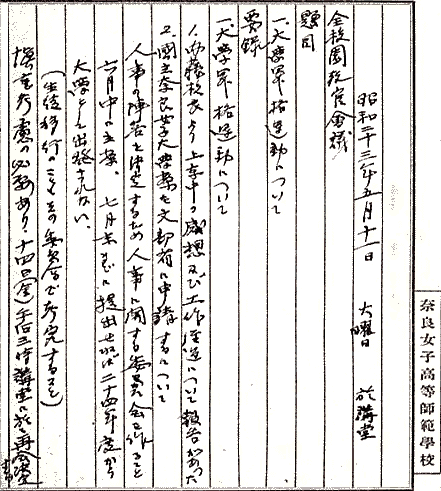 昭和二十三年五月十一日 火曜日 於講堂
全校園教官会議
題目
一、大学昇格運動について
要録
一、大学昇格運動について
1. 内藤校長より上京中の感想及び工作運動について報告があった
2. 國立奈良女子大学案を文部省に申請するについて
人事の陣容を決定するため人事に関する委員会を作ること
六月中に立案、七月末までに提出せねば二十四年度から
大学として出発されない。
(生徒移行のこともその委員会で考究すること)
慎重考慮の必要あり、十四日(金)午后三時講堂に於て再会議
奈良女子高等師範學校